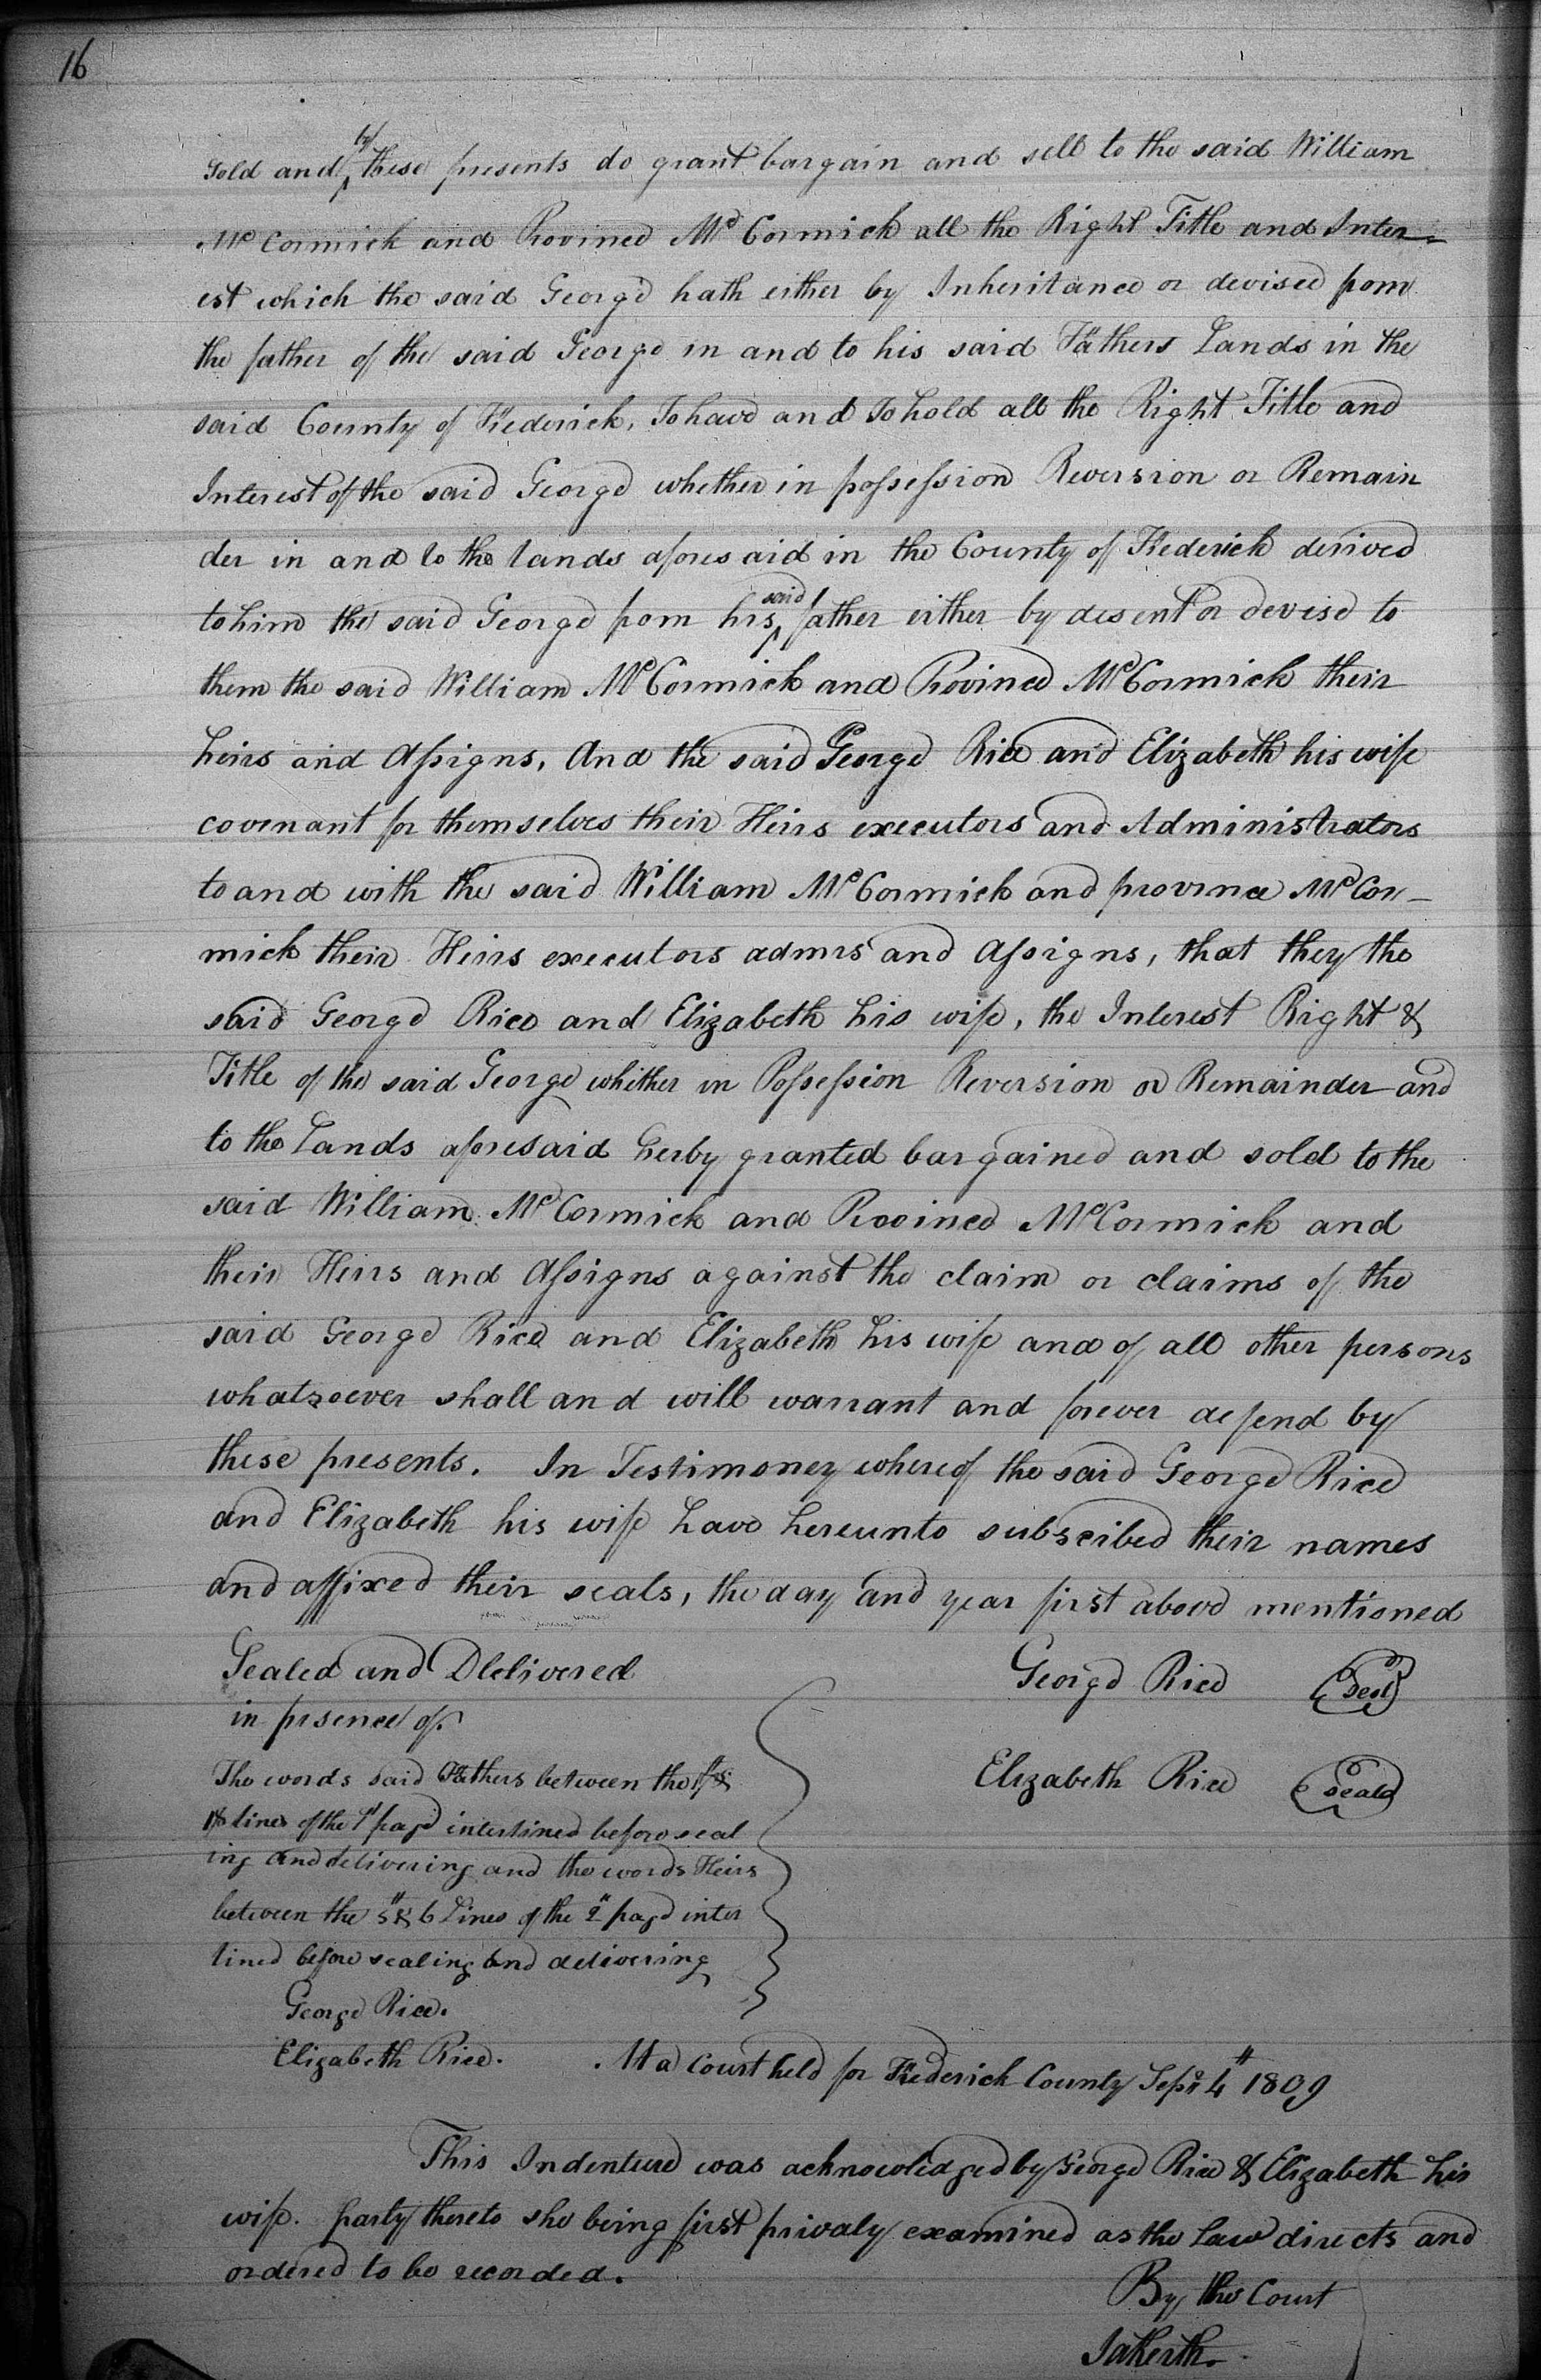 16
by
sold and ‸ these presents do grant bargain and sell to the said William
Mc Cormick and Province McCormick all the Right Title and Inter-
est which the said George hath either by Inheritance or devised from
the father of the said George in and to his said Fathers Lands in the
said County of Frederick, To have and to hold all the Right Title and
Interest of the said George whether in possession Reversion or Remain
der in and to the lands aforesaid in the County of Frederick derived
said
to him the said George from his ‸ father either by desent or devise to
them the said William McCormick and Province McCormick their
heirs and Assigns, And the said George Rice and Elizabeth his wife
covenant for themselves their Heirs executors and Administrators
to and with the said William McCormick and province McCor-
mick their Heirs executors admrs and Assigns, that they the
said George Rice and Elizabeth his wife, the Interest Right &
Title of the said George whither in Possession Reversion or Remainder and
to the Lands aforesaid herby granted bargained and sold to the
said William McCormick and Province McCormick and
their Heirs and Assigns against the claim or claims of the
said George Rice and Elizabeth his wife and of all other persons
whatsoever shall and will warrant and forever defend by
these presents. In Testimoney whereof the said George Rice
and Elizabeth his wife have hereunto subscibed their names
and affixed their seals, the day and year first above mentioned
Sealed and Dlelivered George Rice Seal
in prsence of.
The words said Fathers between the
lines of the 1st page interlined before seal Elizabeth Rice seal
ing and delivering and the words Heirs
between the 5 & 6 Lines of the 2" page inter
lined before sealing and delivering
George Rice.
Elizabeth Rice. At a Court held for Frederick County Sepr 4" 1809
This Indenture was acknowledged by George Rice & Elizabeth his
wife. party thereto she being first privaly examined as the Law directs and
ordered to be recorded.
By the Court